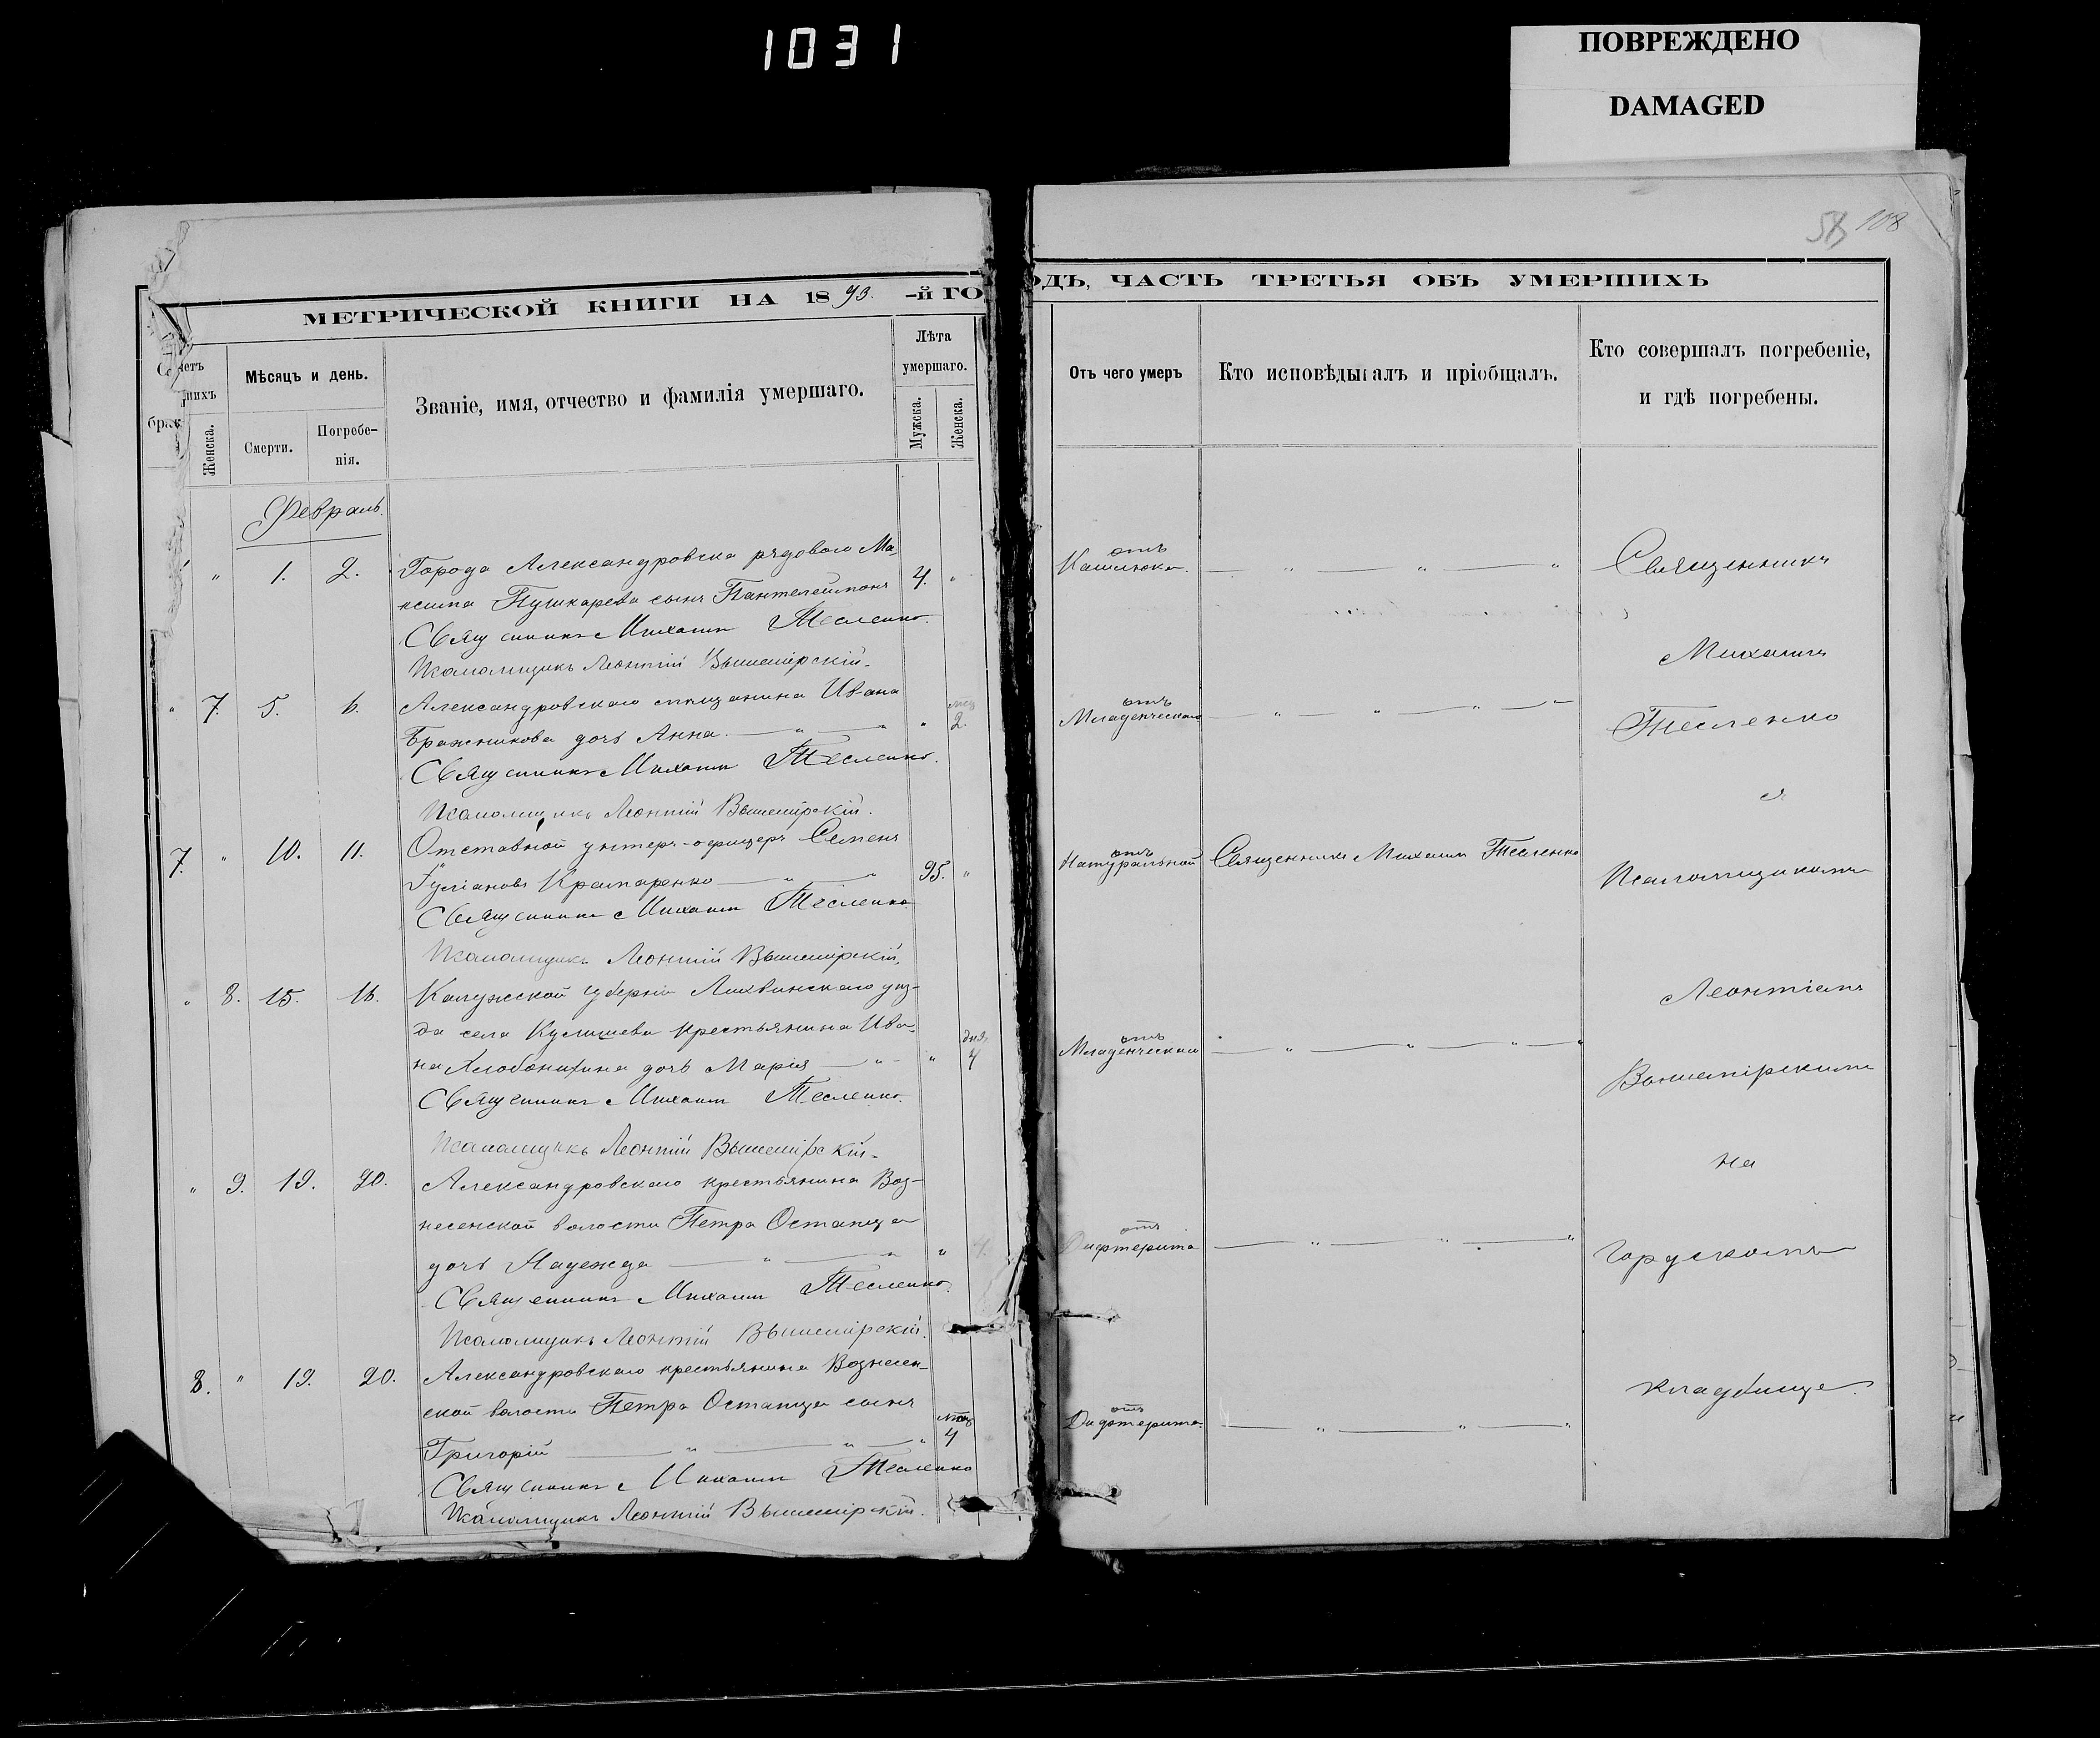 1031
ПОВРЕЖДЕНО
DAMAGED
108
МЕТРИЧЕСКОЙ КНИГИ НА 1893. -й ГО
ОДЪ, ЧАСТЬ ТРЕТЬЯ ОБЪ УМЕРШИХЪ
Мѣсяцъ и день.
Женска.
Смерти.
Погребе-
нія.
Званіе, имя, отчество и фамилія умершаго.
Лѣта
умершаго.
Мужска.
Женска.
Отъ чего умеръ
Кто исповѣдывалъ и пріобщалъ.
Кто совершалъ погребеніе,
и гдѣ погребены.
Февраль.
" 1. 2. Города Александровска рядового Ма-
ксима Пушкарева сынъ Пантелеймонъ 4. "
Священникъ Михаилъ Тесленко.
Псаломщикъ Леонтій Вышемірскій.
отъ
Кашлюка. " " "
" 7. 5. 6. Александровскаго мѣщанина Ивана
Бражникова дочь Анна " " " мес. 2.
Священникъ Михаилъ Тесленко.
Псаломщикъ Леонтій Вышемірскій.
отъ
Младенческаго " " " "
7. " 10. 11. Отставной унтеръ-офицеръ Семенъ
Крамаренко " " 95. "
Священникъ Михаилъ Тесленко
Псаломщикъ Леонтій Вышемірскій.
отъ
Натуральной Священникъ Михаилъ Тесленко
" 8. 15. 16. Калужской губерніи Лихвинскаго уѣз-
да села крестьянина Ива-
на дочь Марія " " дня. 4
Священникъ Михаилъ Тесленко.
Псаломщикъ Леонтій Вышемірскій.
отъ
Младенческаго " " " "
" 9. 19. 20. Александровскаго крестьянина Воз-
несенской волости Петра Остапца
дочь Надежда " " " 4.
Священникъ Михаилъ Тесленко.
Псаломщикъ Леонтій Вышемірскій.
отъ
Дифтерита " " "
8. " 19. 20. Александровскаго крестьянина Вознесен-
ской волости Петра Остапца сынъ
Григорій " " " 4
Священникъ Михаилъ Тесленко
Псаломщикъ Леонтій Вышемірскій.
отъ
Дифтерита. " " "
Священникъ
Михаилъ
Тесленко
съ
Псаломщикомъ
Леонтіемъ
Вышемірскимъ
на
Городскомъ
кладбище.